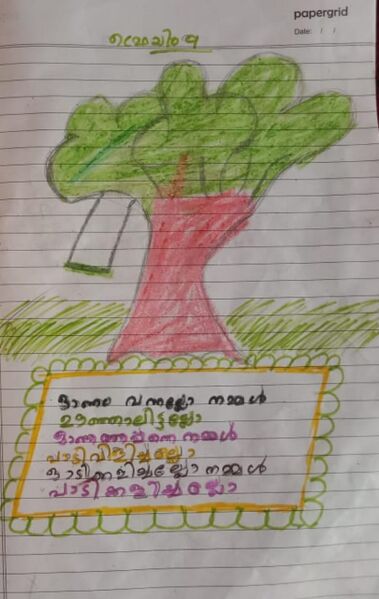 papergrid
Date: / /
ഓണം വന്നല്ലോ നമ്മൾ
ഊഞ്ഞാലിട്ടല്ലോ
ഓണത്തപ്പനെ നമ്മൾ
പാട്ടിവിളിച്ചല്ലോ
ഓടിക്കളിച്ചല്ലോ നമ്മൾ
പാടിക്കളിച്ചല്ലോ